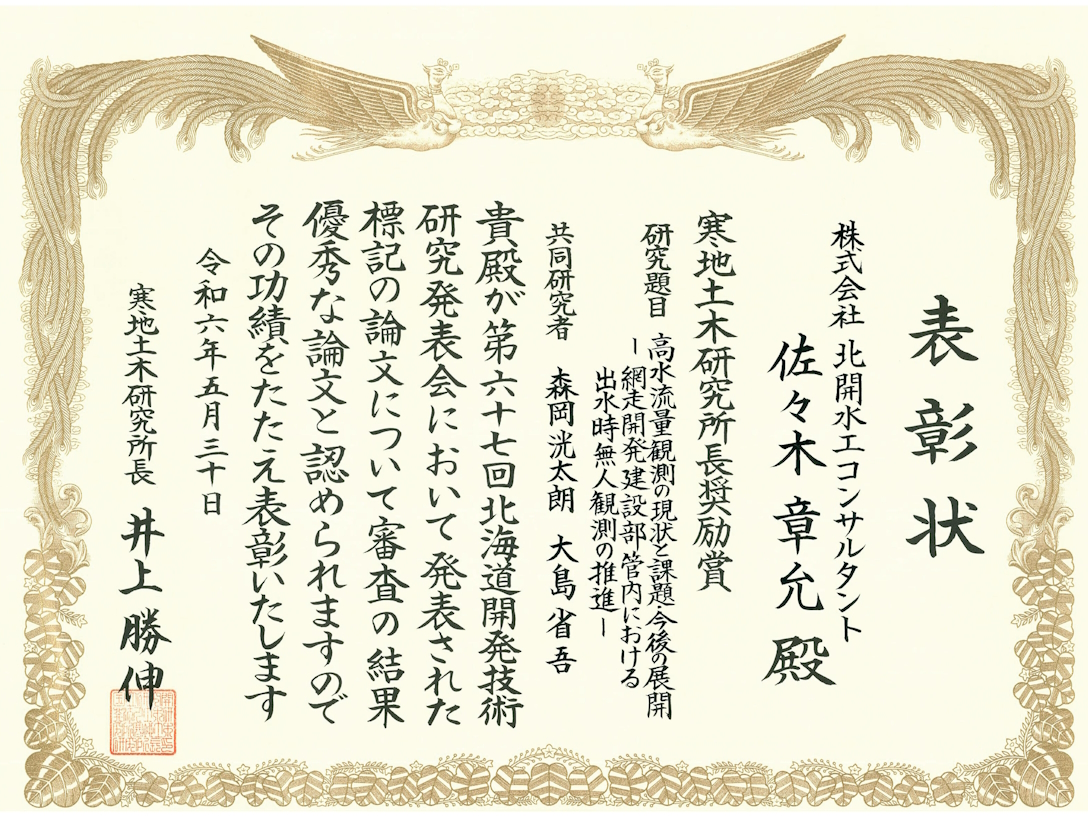 表彰状
株式会社 北開水エコンサルタント
佐々木 章允 殿
寒地土木研究所長奨励賞
研究題目 高水流量観測の現状と課題・今後の展開
ー網走開発建設部 管内における
出水時無人観測の推進ー
共同研究者 森岡洸太朗 大島省吾
貴殿が第六十七回北海道開発技術
研究発表会において発表された
標記の論文について審査の結果
優秀な論文と認められますので
その功績をたたえ表彰いたします
令和六年五月三十日
寒地土木研究所長 井上勝伸